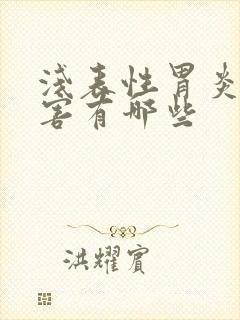 浅表性胃炎
害有哪些
洪耀宾